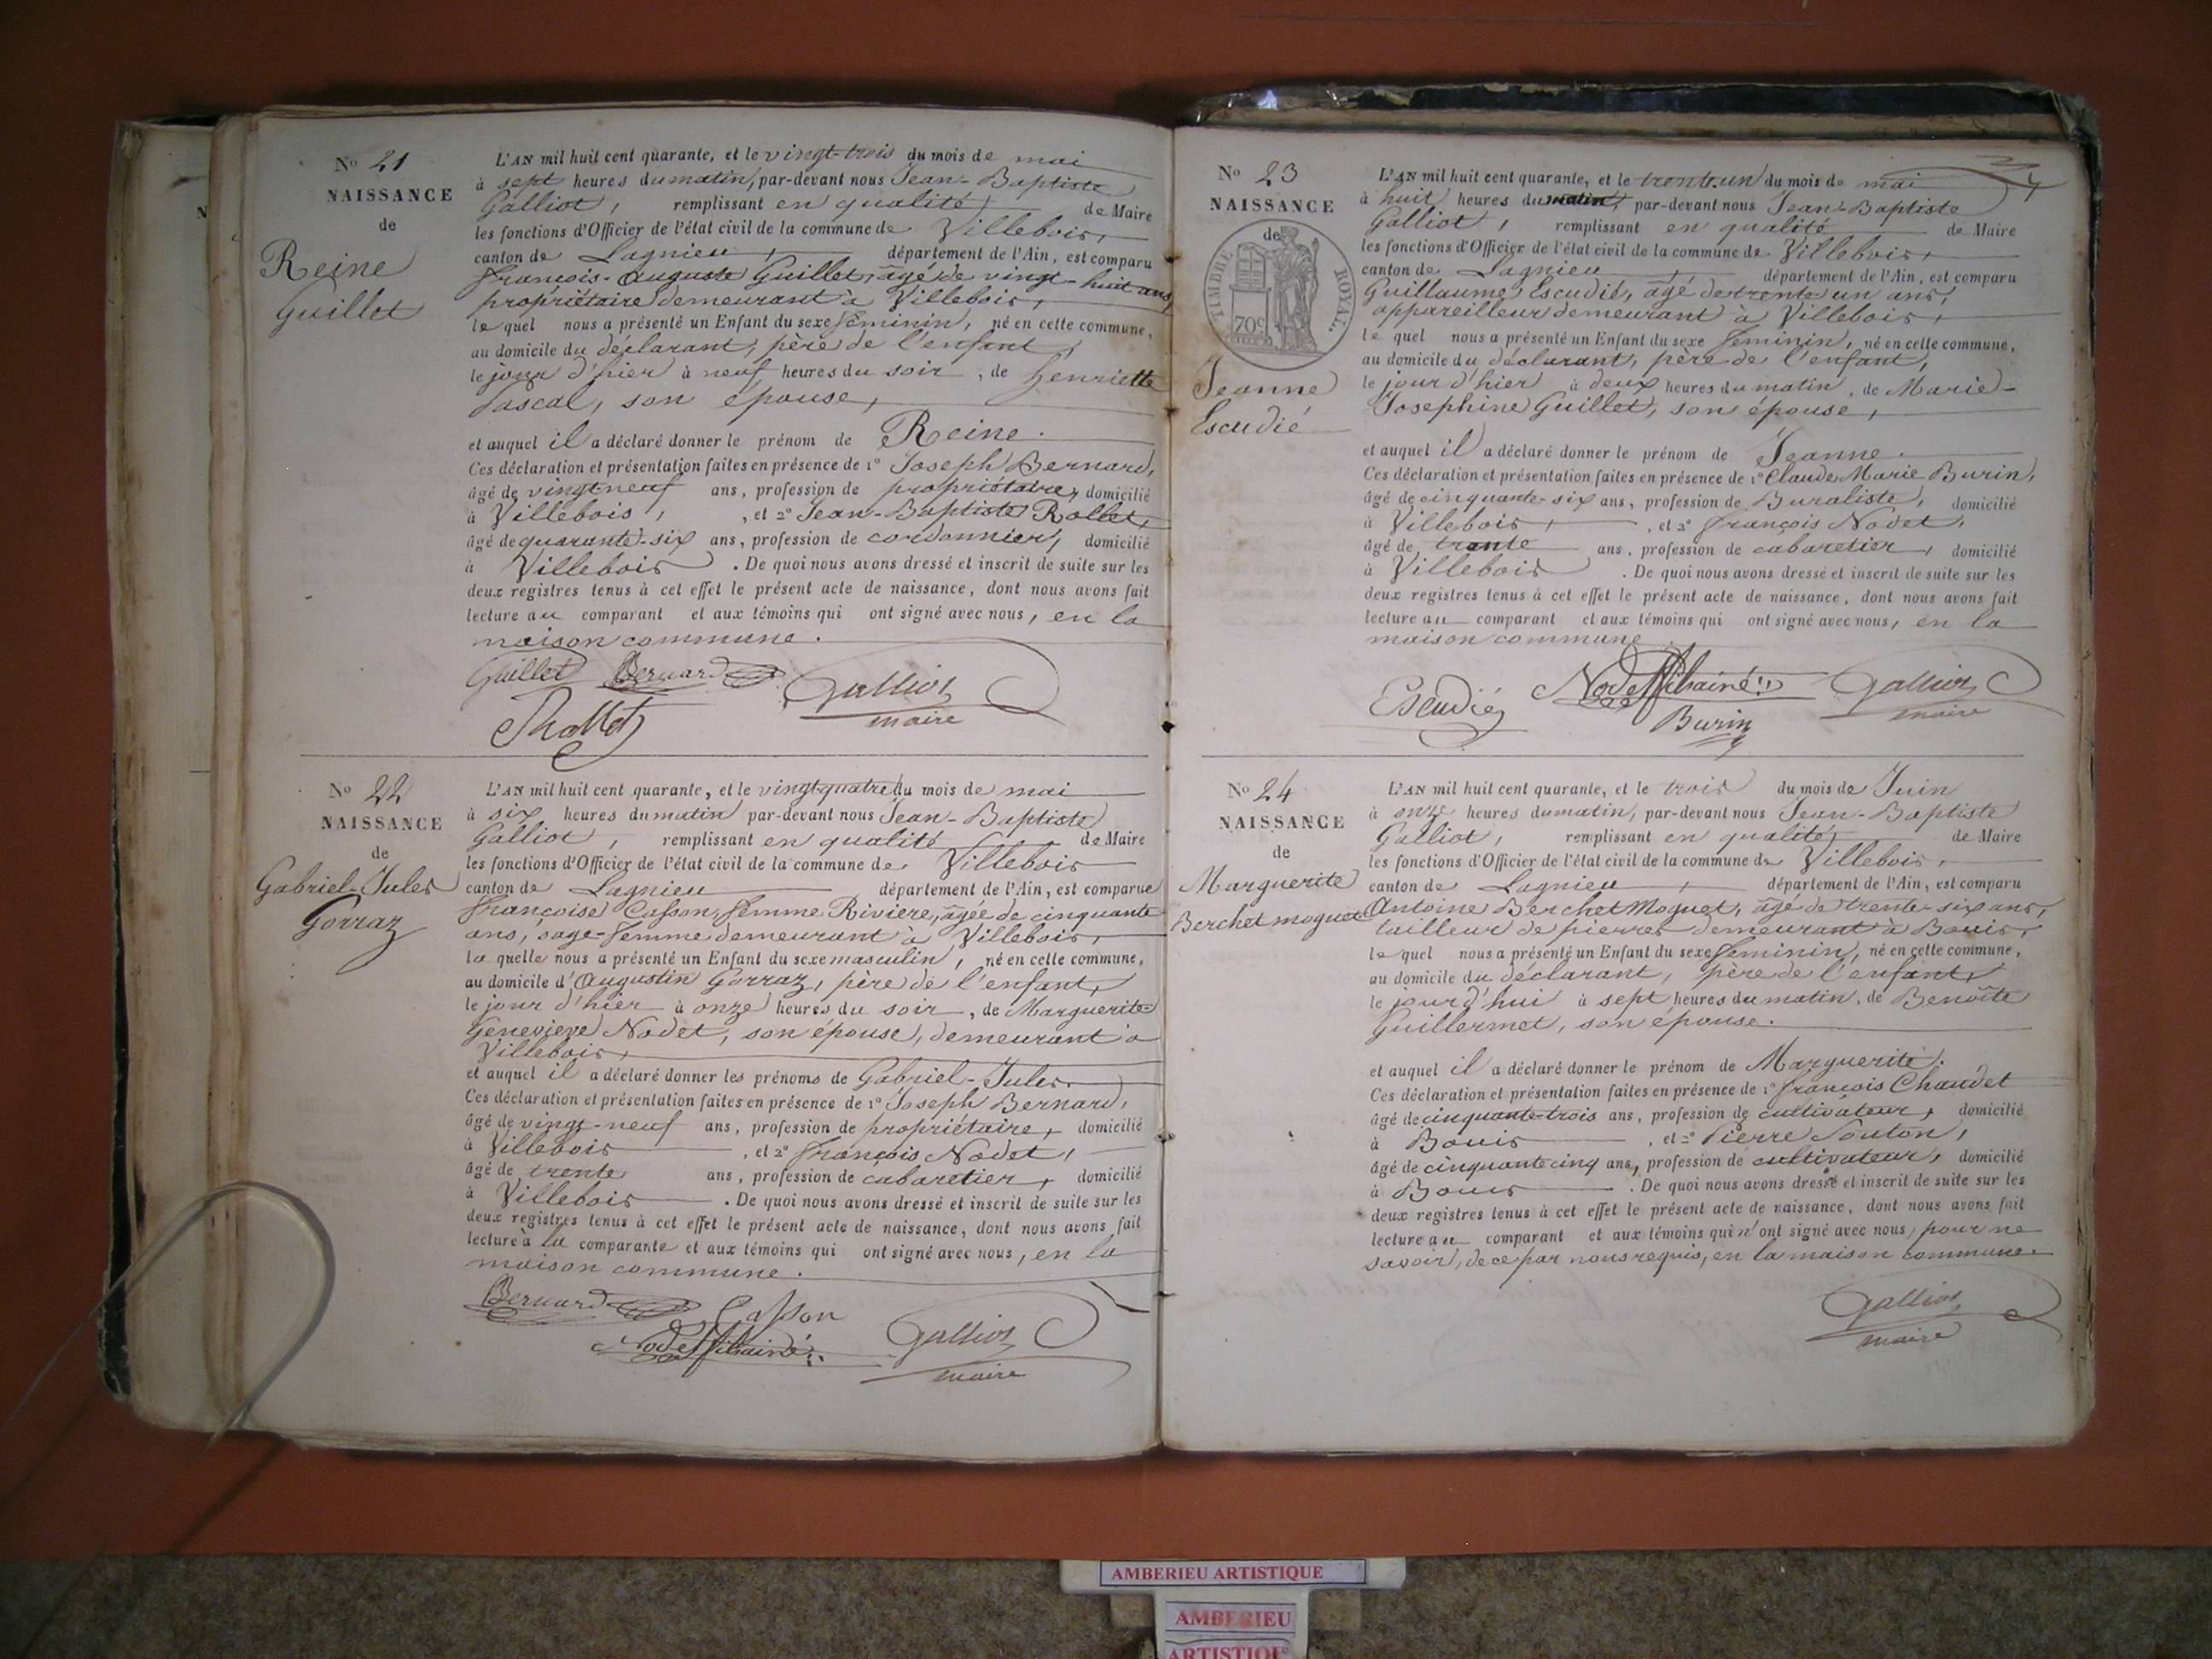 No 21
NAISSANCE
de
Reine
Guillet
L'AN mil huit cent quarante, et le vingt-trois du mois de mai
à sept heures du matin, par-devant nous Jean-Baptiste
Galliot, remplissant en qualité de Maire
les fonctions d'Officier de l'état civil de la commune de Villebois,
canton de Lagnieu, département de l'Ain, est comparu
françois-Auguste Guillet, âgé de vingt-huit ans,
propriétaire demeurant à Villebois,
lequel nous a présenté un Enfant du sexe féminin, né en cette commune,
au domicile du déclarant, père de l'enfant,
le jour d'hier à neuf heures du soir, de henriette
Pascal, son épouse,
et auquel il a déclaré donner le prénom de Reine.
Ces déclaration et présentation faites en présence de 1º Joseph Bernard,
âgé de vingt neuf ans, profession de propriétaire, domicilié
à Villebois, , et 2º Jean-Baptiste Rollet,
âgé de quarante-six ans, profession de cordonnier, domicilié
à Villebois . De quoi nous avons dressé et inscrit de suite sur les
deux registres tenus à cet effet le présent acte de naissance, dont nous avons fait
lecture au comparant et aux témoins qui ont signé avec nous, en la
maison commune.
Guillet Bernard Galliot
maire
No 22
NAISSANCE
de
Gabriel-Jules
Gorraz
L'AN mil huit cent quarante, et le vingt-quatre du mois de mai
à six heures du matin par-devant nous Jean-Baptiste
Galliot, remplissant en qualité de Maire
les fonctions d'Officier de l'état civil de la commune de Villebois
canton de Lagnieu département de l'Ain, est comparue
françoise Casson, femme Riviere, âgée de cinquante
ans, sage-femme demeurant à Villebois,
la quelle nous a présenté un Enfant du sexe masculin, né en cette commune,
au domicile d'Augustin Gorraz, père de l'enfant,
le jour d'hier à onze heures du soir, de Marguerite-
Geneviève Nodet, son épouse, demeurant à
Villebois,
et auquel il a déclaré donner les prénoms de Gabriel-Jules.
Ces déclaration et présentation faites en présence de 1º Joseph Bernard,
âgé de vingt-neuf ans, profession de propriétaire, domicilié
à Villebois , et 2º françois Nodet,
âgé de trente ans, profession de cabaretier, domicilié
à Villebois . De quoi nous avons dressé et inscrit de suite sur les
deux registres tenus à cet effet le présent acte de naissance, dont nous avons fait
lecture à la comparante et aux témoins qui ont signé avec nous, en la
maison commune.
Bernard Casson
Galliot
maire
No 23
NAISSANCE
de
TIMBRE ROYAL.
70c
Jeanne
Escudié
L'AN mil huit cent quarante, et le trente-un du mois de mai
à huit heures du matin, par-devant nous Jean-Baptiste
Galliot, remplissant en qualité de Maire
les fonctions d'Officier de l'état civil de la commune de Villebois,
canton de Lagnieu, département de l'Ain, est comparu
Guillaume Escudié, âgé de trente un ans,
appareilleur demeurant à Villebois,
le quel nous a présenté un Enfant du sexe féminin, né en cette commune,
au domicile du déclarant, père de l'enfant,
le jour d'hier à deux heures du matin, de Marie-
Josephine Guillet, son épouse,
et auquel il a déclaré donner le prénom de Jeanne.
Ces déclaration et présentation faites en présence de 1º Claude Marie Burin,
âgé de cinquante-six ans, profession de Buraliste, domicilié
à Villebois, , et 2º françois Nodet,
âgé de trente ans, profession de cabaretier, domicilié
à Villebois . De quoi nous avons dressé et inscrit de suite sur les
deux registres tenus à cet effet le présent acte de naissance, dont nous avons fait
lecture au comparant et aux témoins qui ont signé avec nous, en la
maison commune.
Escudié Galliot
Burin maire
No 24
NAISSANCE
de
Marguerite
Berchet moguet
L'AN mil huit cent quarante, et le trois du mois de Juin
à onze heures du matin, par-devant nous Jean-Baptiste
Galliot, remplissant en qualité de Maire
les fonctions d'Officier de l'état civil de la commune de Villebois,
canton de Lagnieu, département de l'Ain, est comparu
Antoine Berchet Moguet, âgé de trente-six ans,
tailleur de pierres demeurant à Bouis,
le quel nous a présenté un Enfant du sexe féminin, né en cette commune,
au domicile du déclarant, père de l'enfant,
le jour d'hui à sept heures du matin, de Benoîte
Guillermet, son épouse.
et auquel il a déclaré donner le prénom de Marguerite.
Ces déclaration et présentation faites en présence de 1º françois Chaudet
âgé de cinquante-trois ans, profession de cultivateur, domicilié
à Bouis , et 2º Pierre Souton,
âgé de cinquante cinq ans, profession de cultivateur, domicilié
à Bouis . De quoi nous avons dressé et inscrit de suite sur les
deux registres tenus à cet effet le présent acte de naissance, dont nous avons fait
lecture au comparant et aux témoins qui n'ont signé avec nous, pour ne
savoir, de ce par nous requis, en la maison commune.
Galliot
maire
AMBERIEU ARTISTIQUE
AMBERIEU
ARTISTIQUE